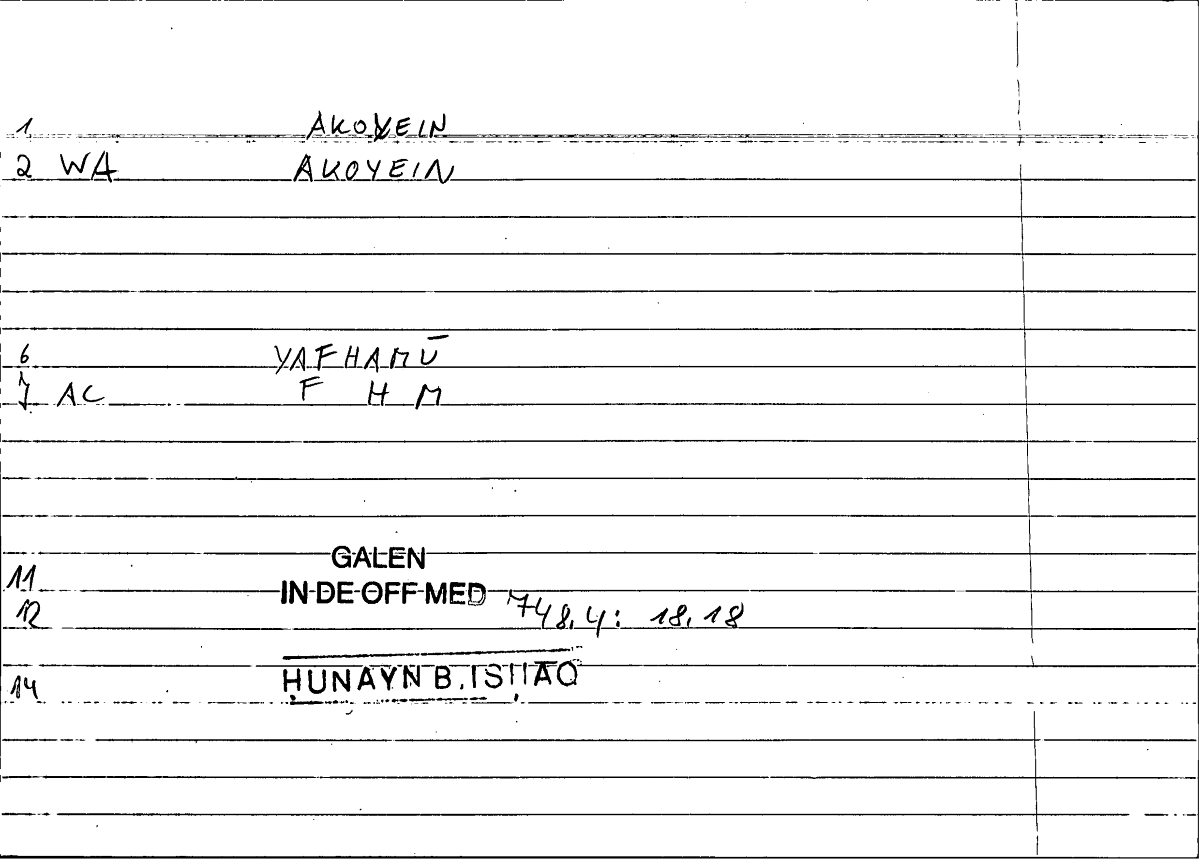 1 AKOYEIN
2 WA AKOYEIN
6 YAFHAMŪ
7 AC F H M
11 GALEN
12 IN DE OFF MED 748,4: 18,18
14 ḤUNAYN B. ISḤĀQ